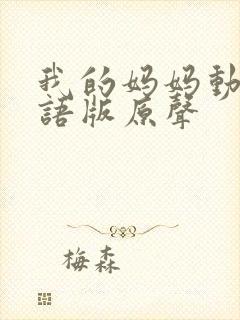 我的妈妈動
語版原聲
梅森